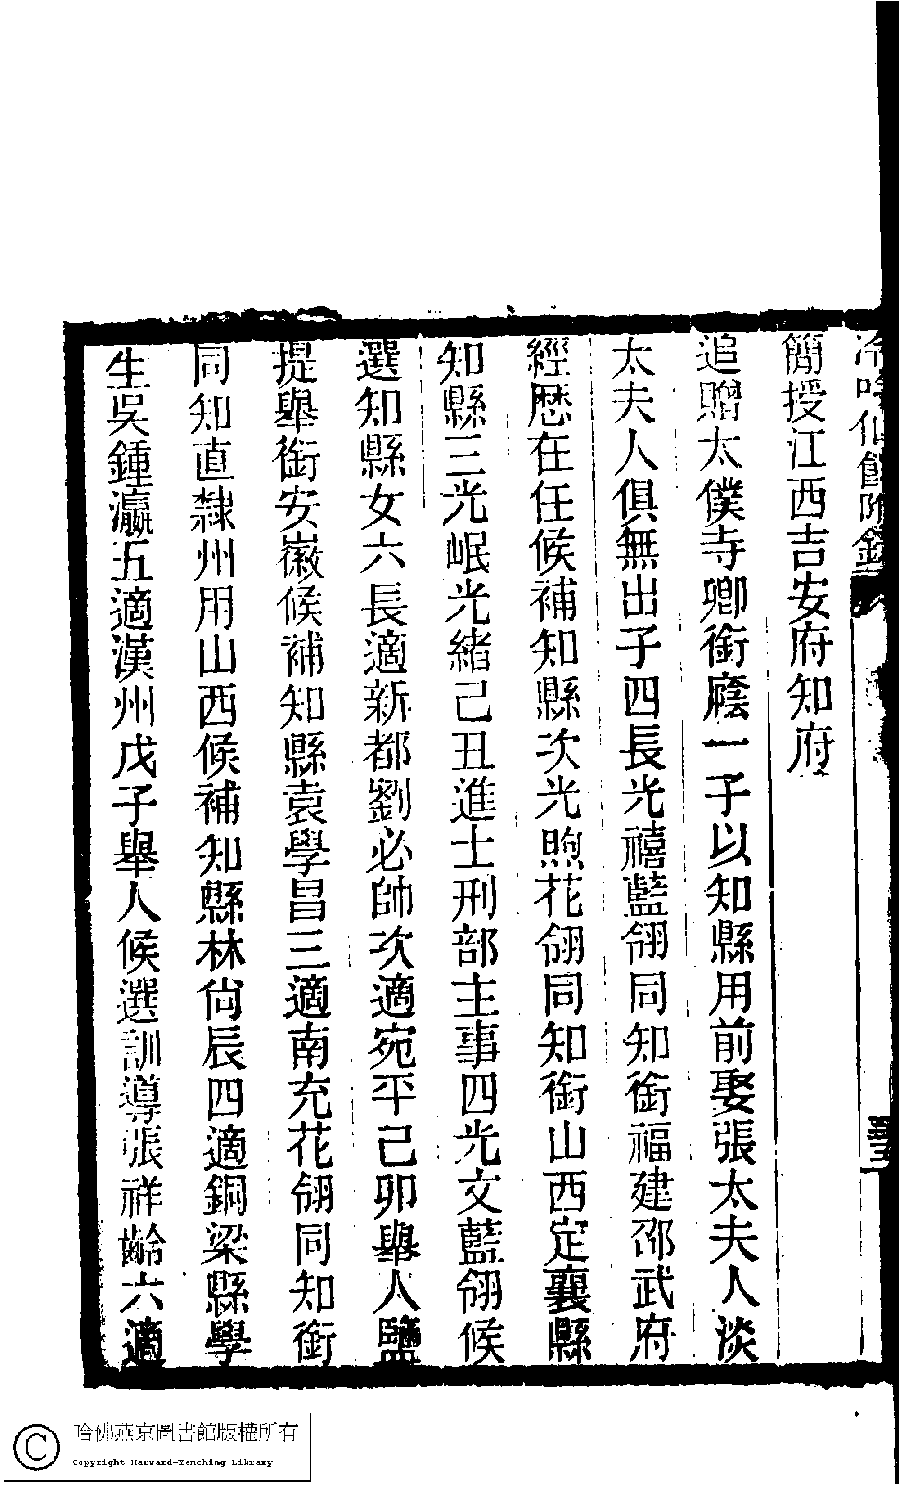 冷吟仙館附錄
簡授江西吉安府知府
追贈太僕寺卿銜廕一子以知縣用前娶張太夫人淡
太夫人俱無出子四長光禧藍翎同知銜福建邵武府
經歷在任候補知縣次光煦花翎同知銜山西定襄縣
知縣三光岷光緒己丑進士刑部主事四光文藍翎候
選知縣女六長適新都劉必帥次適宛平己卯舉人鹽
提舉銜安徽候補知縣袁學昌三適南充花翎同知銜
同知直隸州用山西候補知縣林尙辰四適銅梁縣學
生吳鍾瀛五適漢州戊子舉人候選訓導張祥齡六適
哈佛燕京圖書館版權所有
Copyright Harvard-Yenching Library